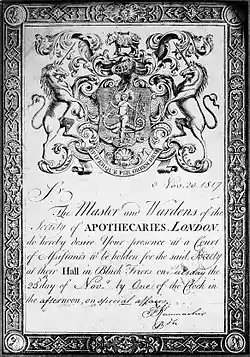 Nov. 20. 1817
Sr.
The Master and Wardens of the
Society of APOTHECARIES, LONDON,
do hereby desire Your presence at a Court
of Assistants to be holden for the said Society
at their Hall in Black Friers on the
25 day of Novr. by One of the Clock in
the afternoon, on special affairs.